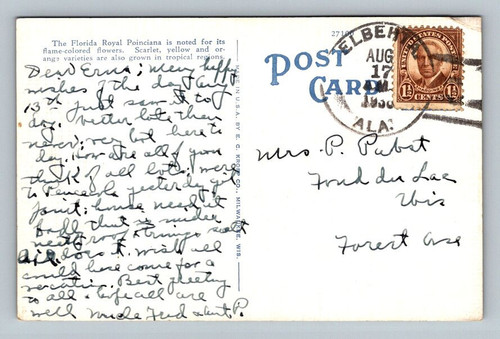 The Florida Royal Poinciana is noted for its
flame-colored flowers. Scarlet, yellow and or-
ange varieties are also grown in tropical regions.
Dear Erna: Many happy
wishes of the day Aug
13th just saw it to
day. Better late than
never; very hot here to
day. How are all of you
of all lots; went
to yesterday got
paint; house need it
badly that is
proof things
Air does it. Wish all
could here come for a
vacation. Best greeting
to all. Wife all are
well Uncle Ferd Aunt P.
MADE IN U.S.A. BY E. C. KROPP CO., MILWAUKEE, WIS.
POST
CARD
ELBERTA
AUG
17
ALA.
UNITED STATES POSTAGE
1½ CENTS 1½
Mrs. P. Pabst
Fond du Lac
Wis
Forest Ave